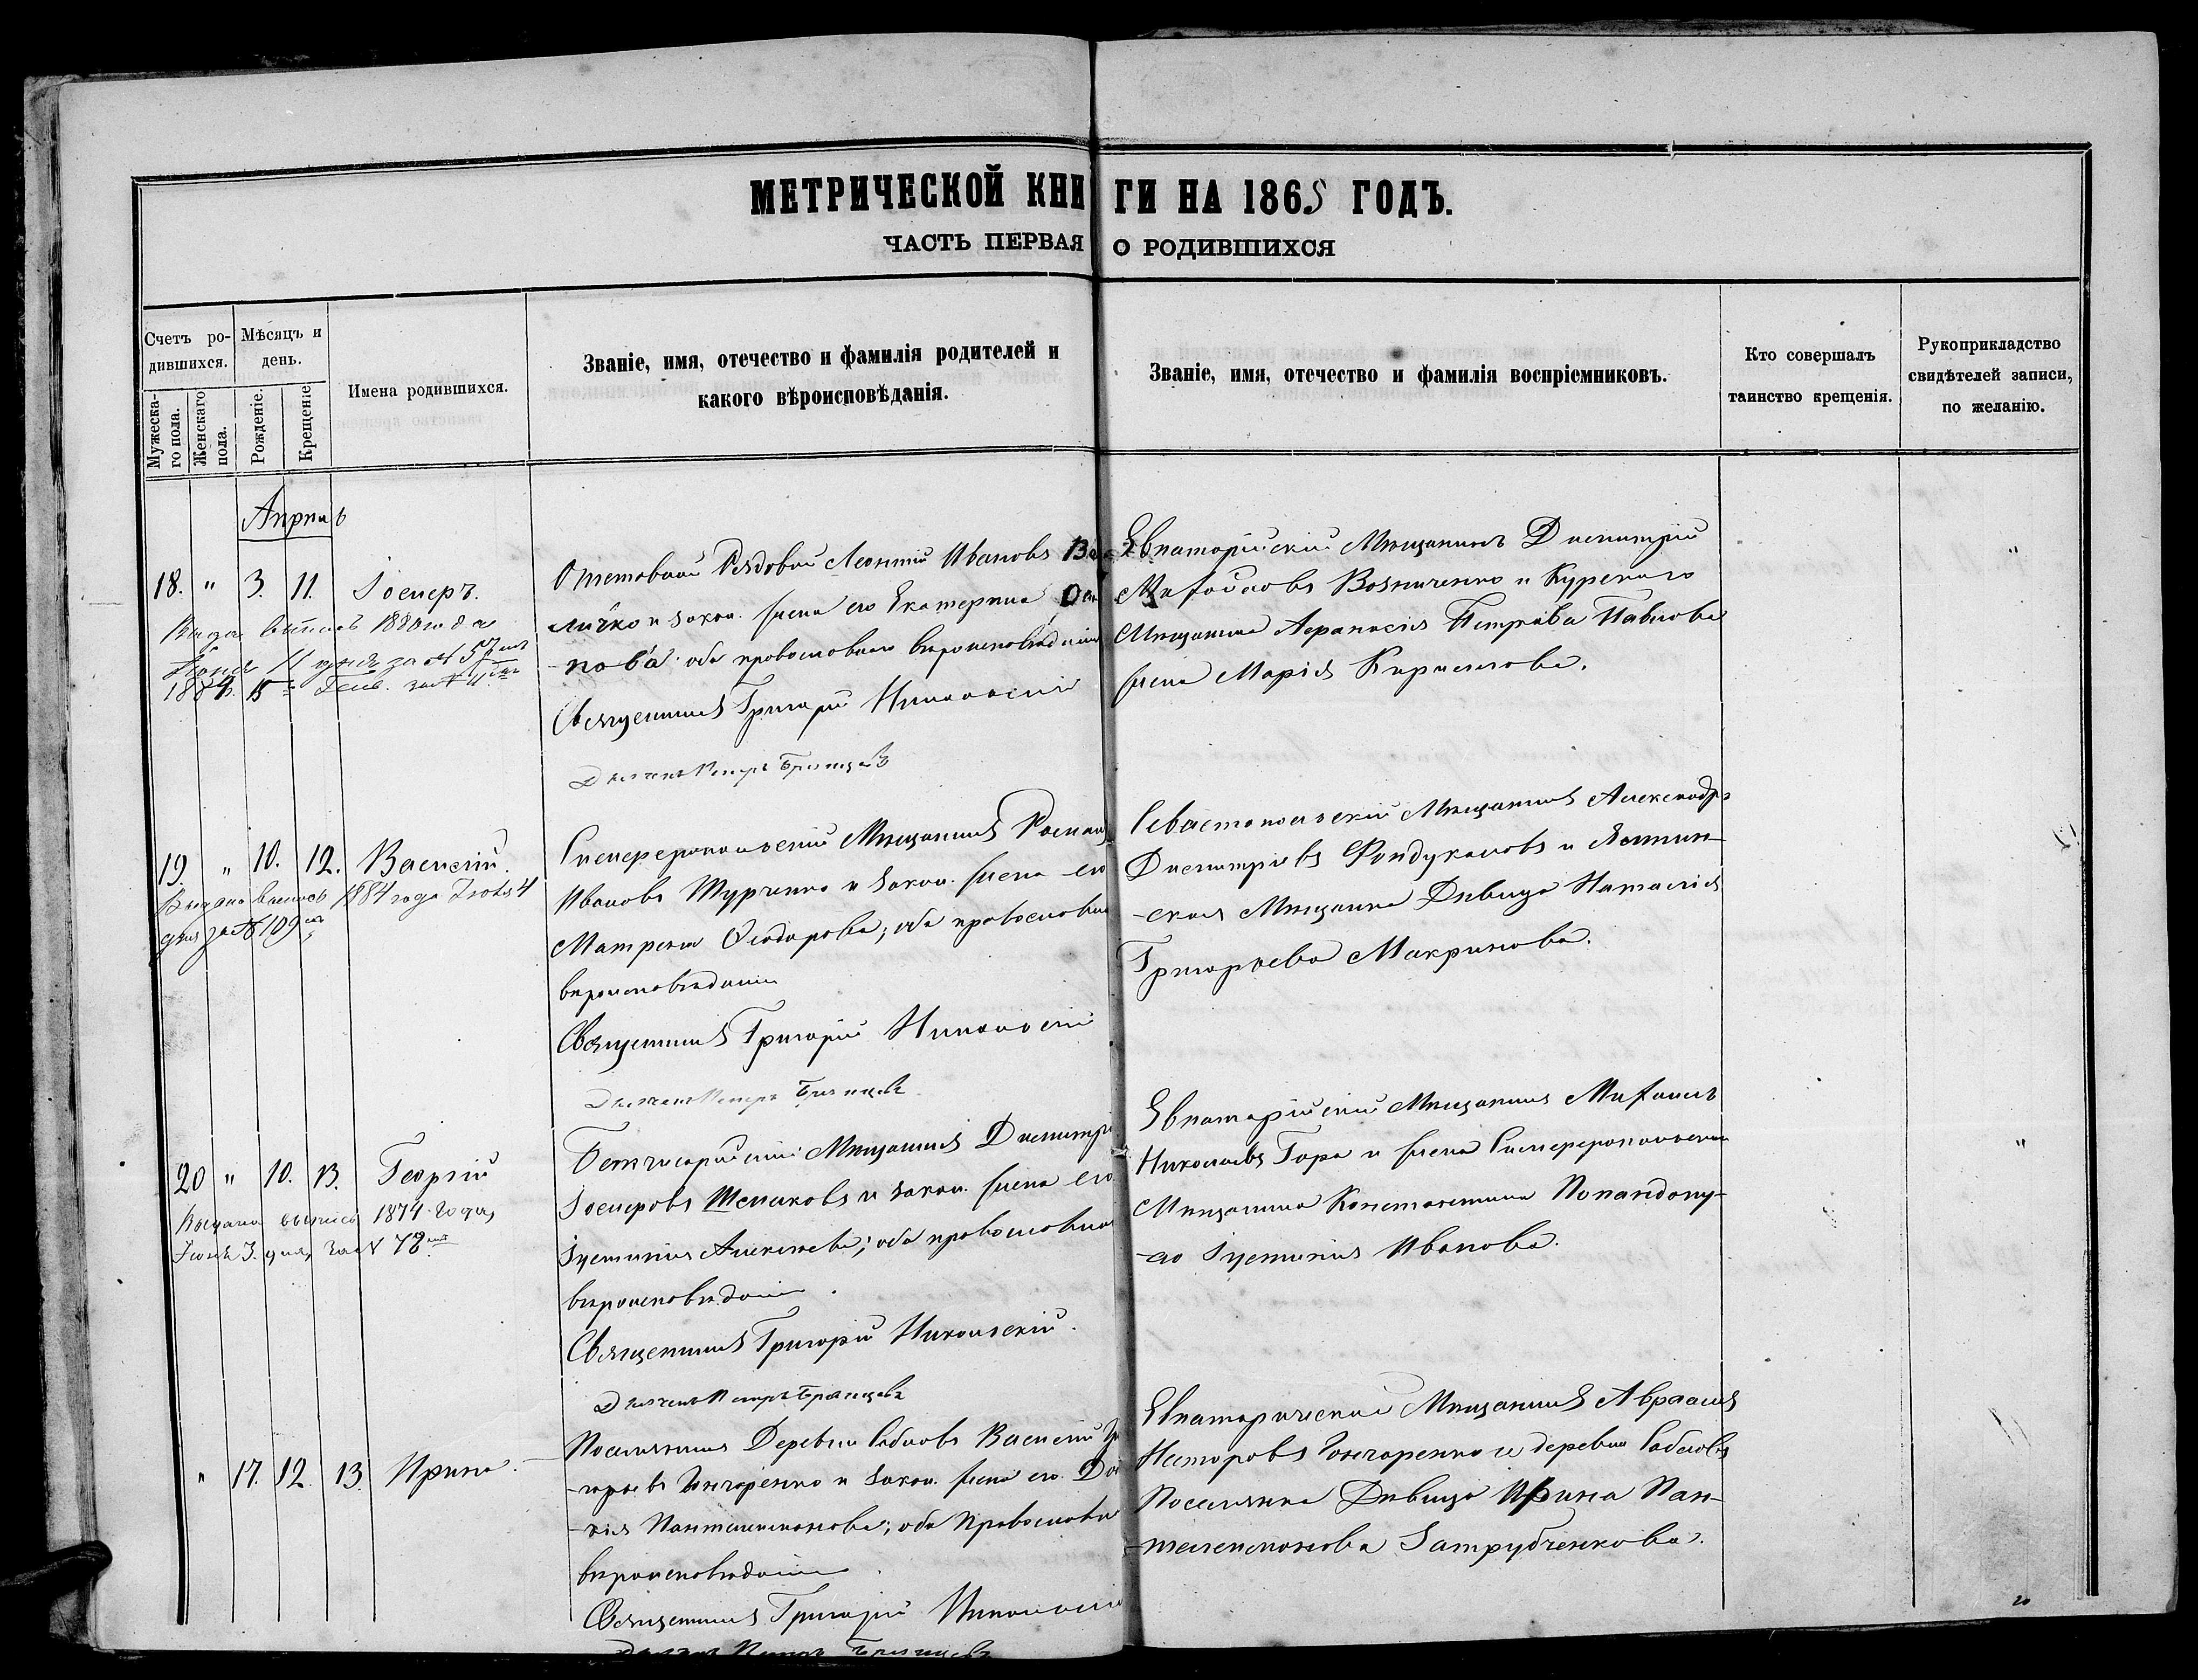 МЕТРИЧЕСКОЙ КНИГИ НА 1865 ГОДЪ.
ЧАСТЬ ПЕРВАЯ О РОДИВШИХСЯ
Счетъ ро-
дившихся.
Мужеска-
го пола.
Женскаго
пола.
Мѣсяцъ и
день.
Рожденіе.
Крещеніе
Имена родившихся.
Званіе, имя, отечество и фамилія родителей и
какого вѣроисповѣданія.
Званіе, имя, отечество и фамилія воспріемниковъ.
Кто совершалъ
таинство крещенія.
Рукоприкладство
свидѣтелей записи,
по желанію.
Апрѣль
18. " 3. 11. Іосифъ.
1880 года
11 дня за № 57
Рядовой Леонтій Ивановъ
личко и закон. жена его Екатерина
пова оба православнаго вѣроисповѣданія
Священникъ Григорій Никольскій
Дьячекъ Петръ
Евпаторійскій Мѣщанинъ Дмитрій
Михайловъ Возниченко и Курскаго
Мѣщанина Афанасія Петрова Павлова
жена Марія Кириллова.
"
19. " 10. 12. Василій.
Выдана выпись 1884 года Іюля 4
дня за № 109
Симферопольскій Мѣщанинъ Роман
Ивановъ Шурченко и закон. жена его
Матрена Ѳеодорова; оба православн
вѣроисповѣданія
Священникъ Григорій Никольскій
Дьячекъ Петръ
Севастопольскій Мѣщанинъ Александръ
Дмитріевъ Фондукловъ и Ялтин-
ская Мѣщанка Дѣвица Наталія
Григорьева Макрикова.
20 " 10. 13. Георгій
Выдана выпись 1874 года,
Іюня 3. дня, за № 78
Мѣщанинъ Дмитрі
Іосифовъ Шемаковъ и закон. жена его
Іустинія Алексѣева; оба православна
вѣроисповѣданія.
Священникъ Григорій Никольскій.
Дьячекъ Петръ
Евпаторійскій Мѣщанинъ Михаилъ
Николаевъ Гора и жена Симферопольскаго
Мѣщанина Константина Попандопу-
ло Іустинія Иванова.
"
" 17. 12. 13. Ирина.
Поселянинъ Деревни Сабловъ Василій Гри
-горьевъ Гончаренко и закон. жена его
-кія Пантелеимонова; оба Православн
вѣроисповѣданія.
Священникъ Григорій Никольскій
Дьячекъ Петръ
Мѣщанинъ Авраамъ
Несторовъ Гончаренко и деревни Сабловъ
Поселянка Дѣвица Ирина Пан-
-телеимонова Затрубченкова.
20